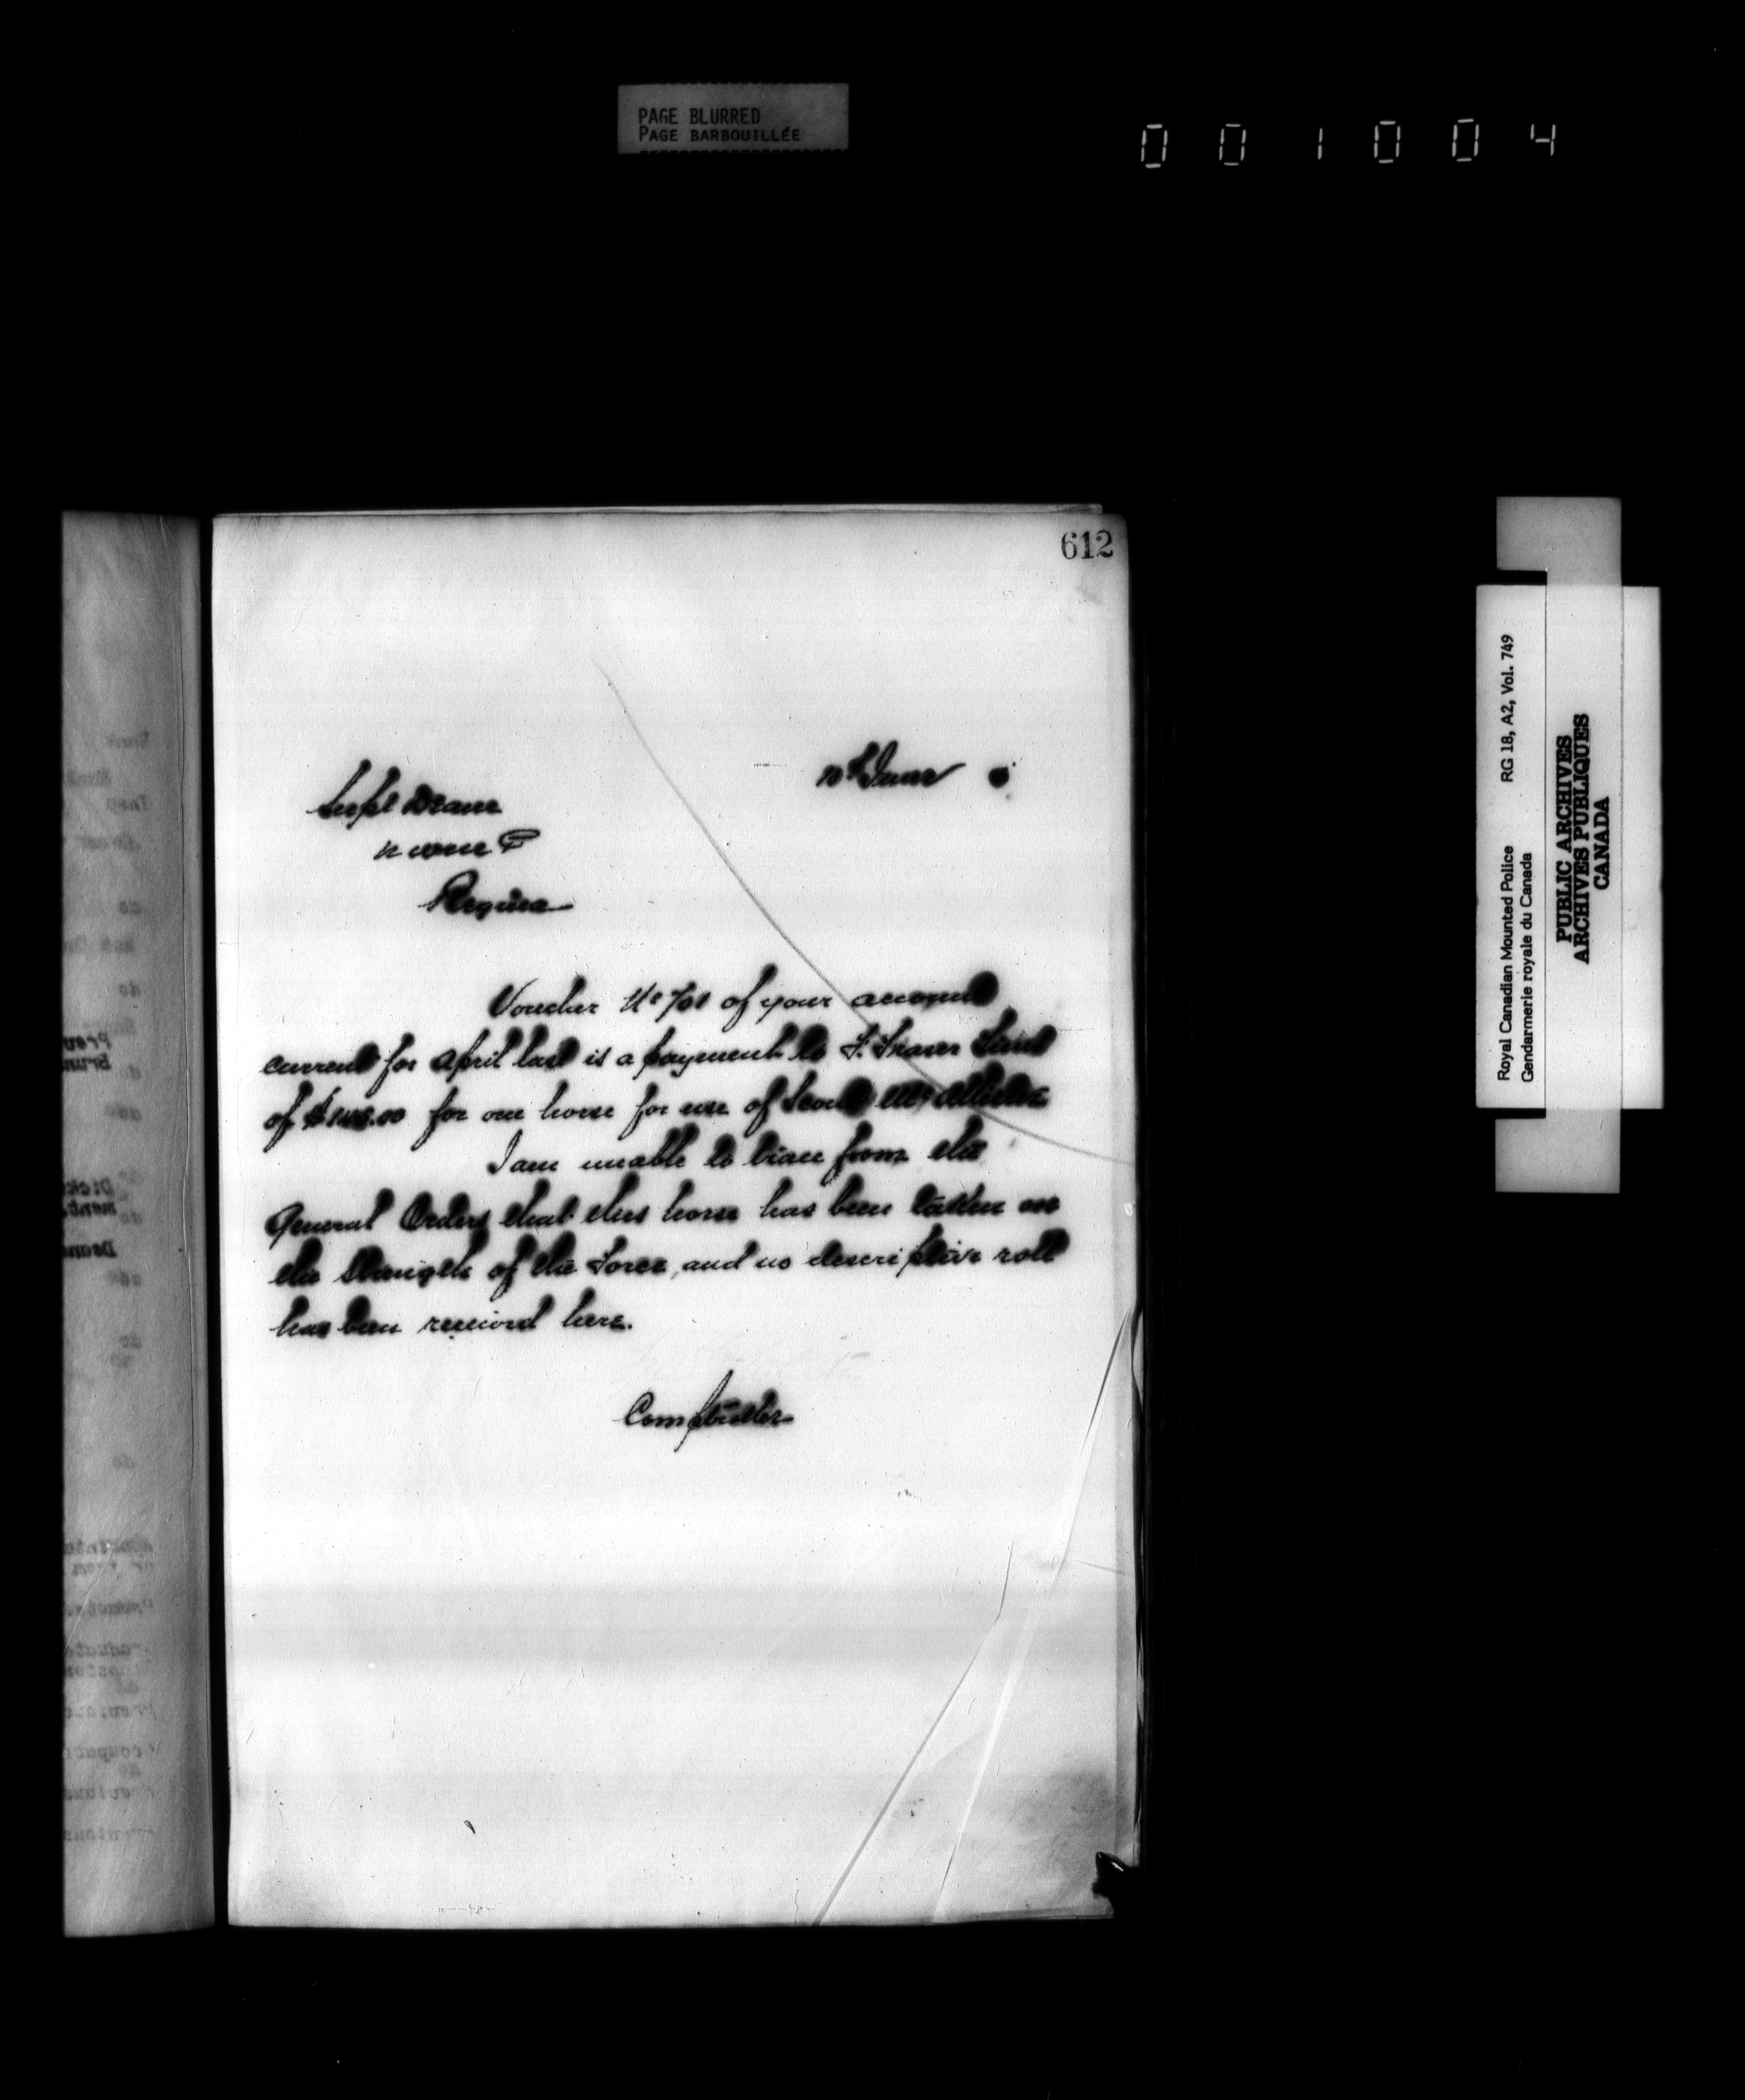 PAGE BLURRED
PAGE BARBOUILLÉE
001004
612
10th June
Supt Deane
N W M P
Regina
Voucher No 701 of your account
current for April last is a payment to F. Fraser
of for one horse for use of Scout
I am unable to trace from the
General Orders that this horse has been taken on
the strength of the Force, and no descriptive roll
has been received here.
Comptroller
Royal Canadian Mounted Police RG 18, A2, Vol. 749
Gendarmerie royale du Canada
PUBLIC ARCHIVES
ARCHIVES PUBLIQUES
CANADA